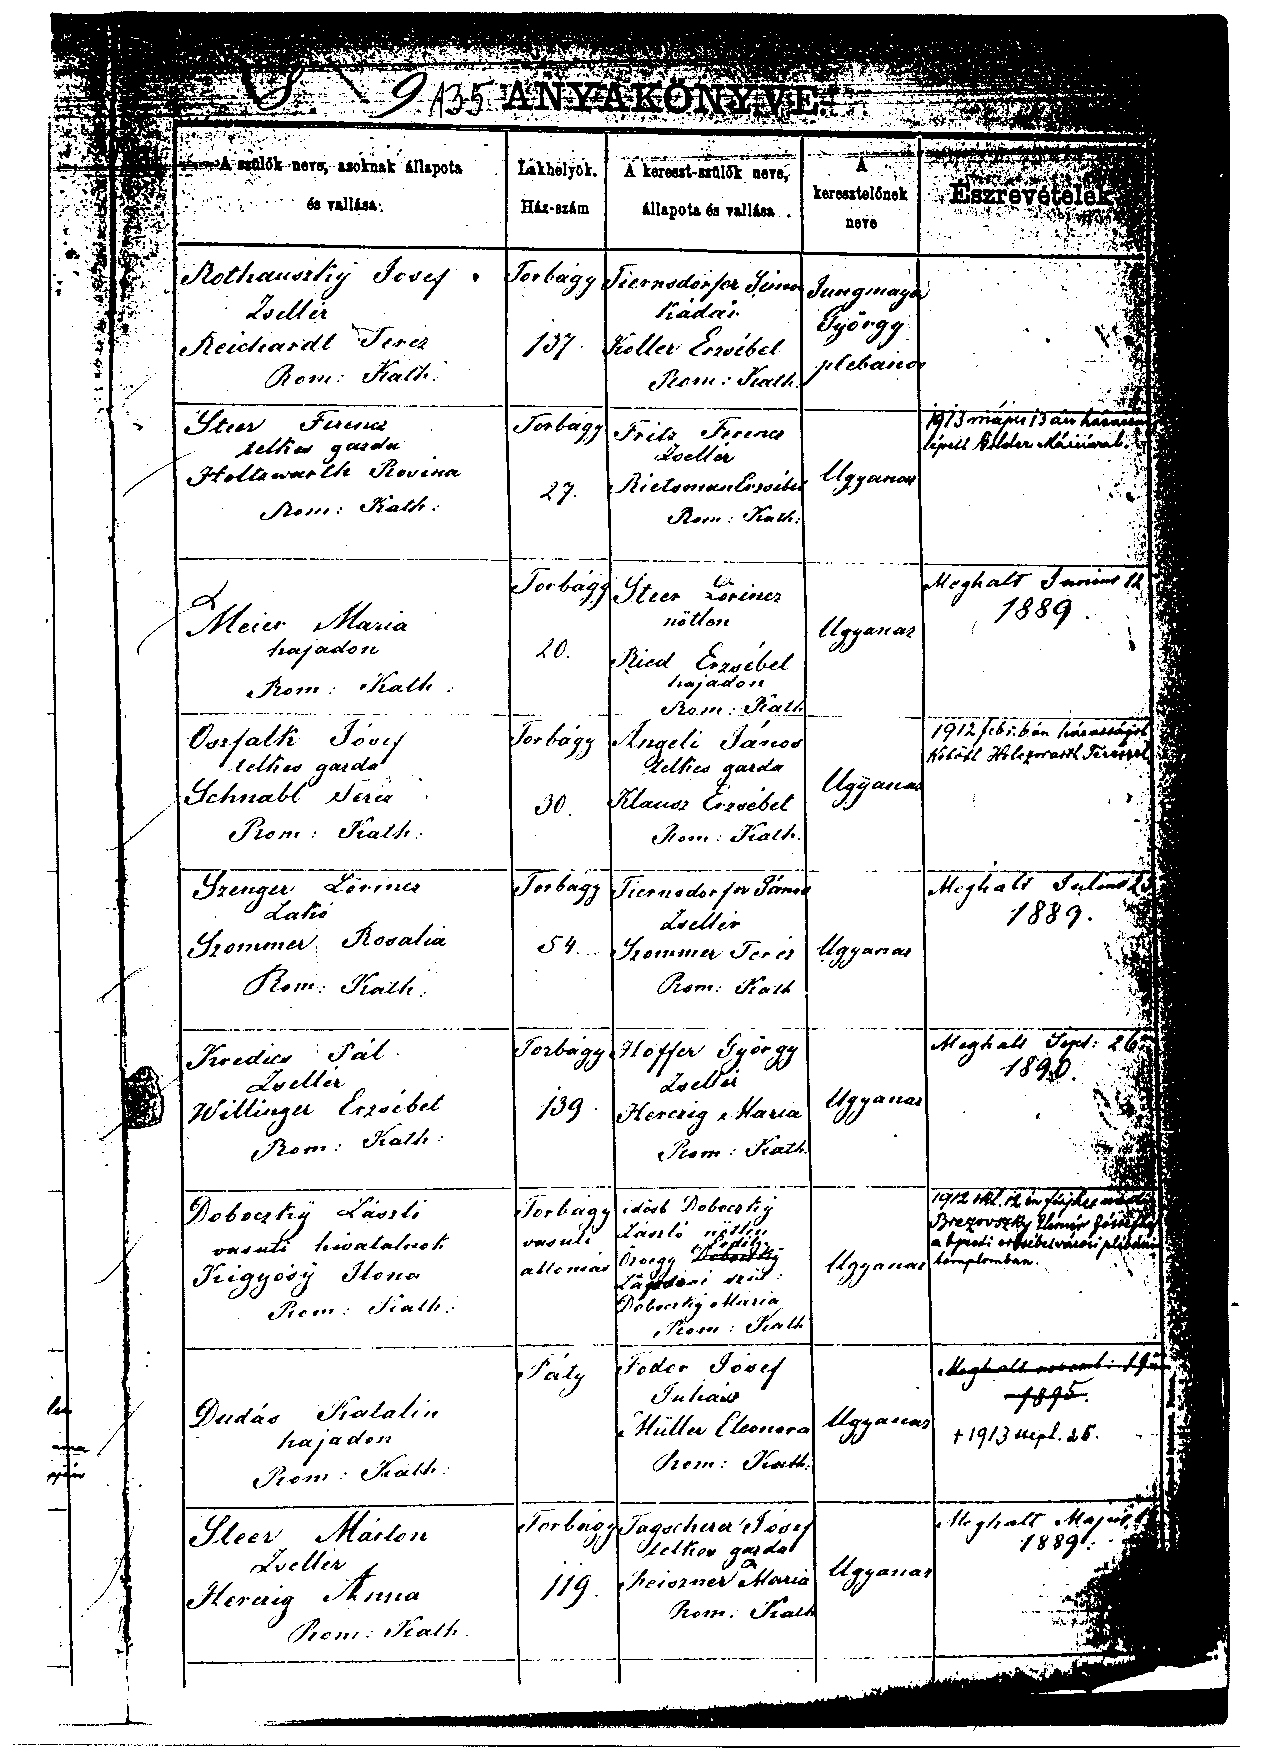 9 135 ANYAKÖNYVE.
A szülők neve, azoknak állapota
és vallása.
Lakhelyök.
Ház-szám
A kereszt-szülők neve,
állapota és vallása.
A
keresztelőnek
neve
Észrevételek
Rothauszky Josef
Zsellér
Reichardt Terez
Rom: Kath:
Torbágy
137.
Kádár
Koller Erzsébet
Rom: Kath.
György
plebános
Steer Ferencz
telkes gazda
Holtzwarth Rosina
Rom: Kath:
Torbágy
27.
Fritz Ferencz
Zsellér
Erzsébet
Rom: Kath:
Ugyanaz
1913 május 13 án
lépett Máriával.
Meier Maria
hajadon
Rom: Kath:
Torbágy
20.
Steer Lörincz
nötlen
Ried Erzsébet
hajadon
Rom: Kath
Ugyanaz
Meghalt Junius 12
1889.
Oszfalk Jósef
telkes gazda
Schnabl Teréz
Rom: Kath:
Torbágy
30.
Angeli János
telkes gazda
Klausz Erzsébet
Rom: Kath.
Ugyanaz
1912 febr.
Szenger Lörincz
Lakó
Szommer Rosalia
Rom: Kath:
Torbágy
54.
Tiernsdorfer János
Zsellér
Szommer Teréz
Rom: Kath
Ugyanaz
Meghalt Julius 23
1889.
Kredics Pál
Zsellér
Willinger Erzsébet
Rom: Kath:
Torbágy
139.
Hoffer György
Zsellér
Herczig Maria
Rom: Kath.
Ugyanaz
Meghalt Sept: 26
1890.
Doboczky László
vasuti hivatalnok
Kigyósy Ilona
Rom: Kath:
Torbágy
vasuti
allomás
idősb Doboczky
László nötlen
Özvegy
Doboczky Maria
Rom: Kath
Ugyanaz
1912 okt. 12 én
Brezovszky Elemér
templomban.
Dudás Katalin
hajadon
Rom: Kath:
Páty
Fodor Jósef
Juhász
Müller Eleonora
Rom: Kath:
Ugyanaz
Meghalt novemb: 19
1895.
+ 1913 szept. 26.
Steer Márton
Zsellér
Herczig Anna
Rom: Kath.
Torbágy
119.
Tagscherer Jósef
telkes gazda
Maria
Rom. Kath
Ugyanaz
Meghalt Majus
1889.